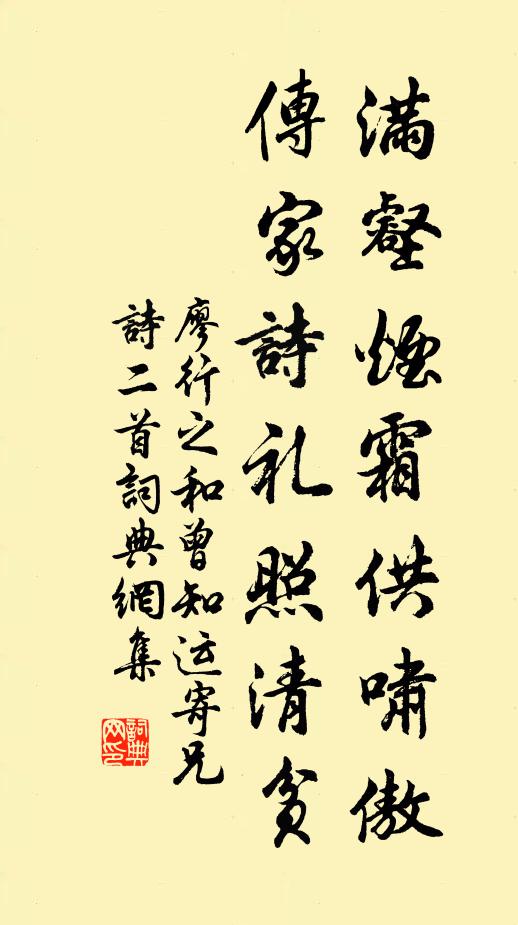 滿壑煙霜供嘯傲
傳家詩礼照清貧
廖行之和曾知运寄兄
詩二首詞典網集
詞典网印